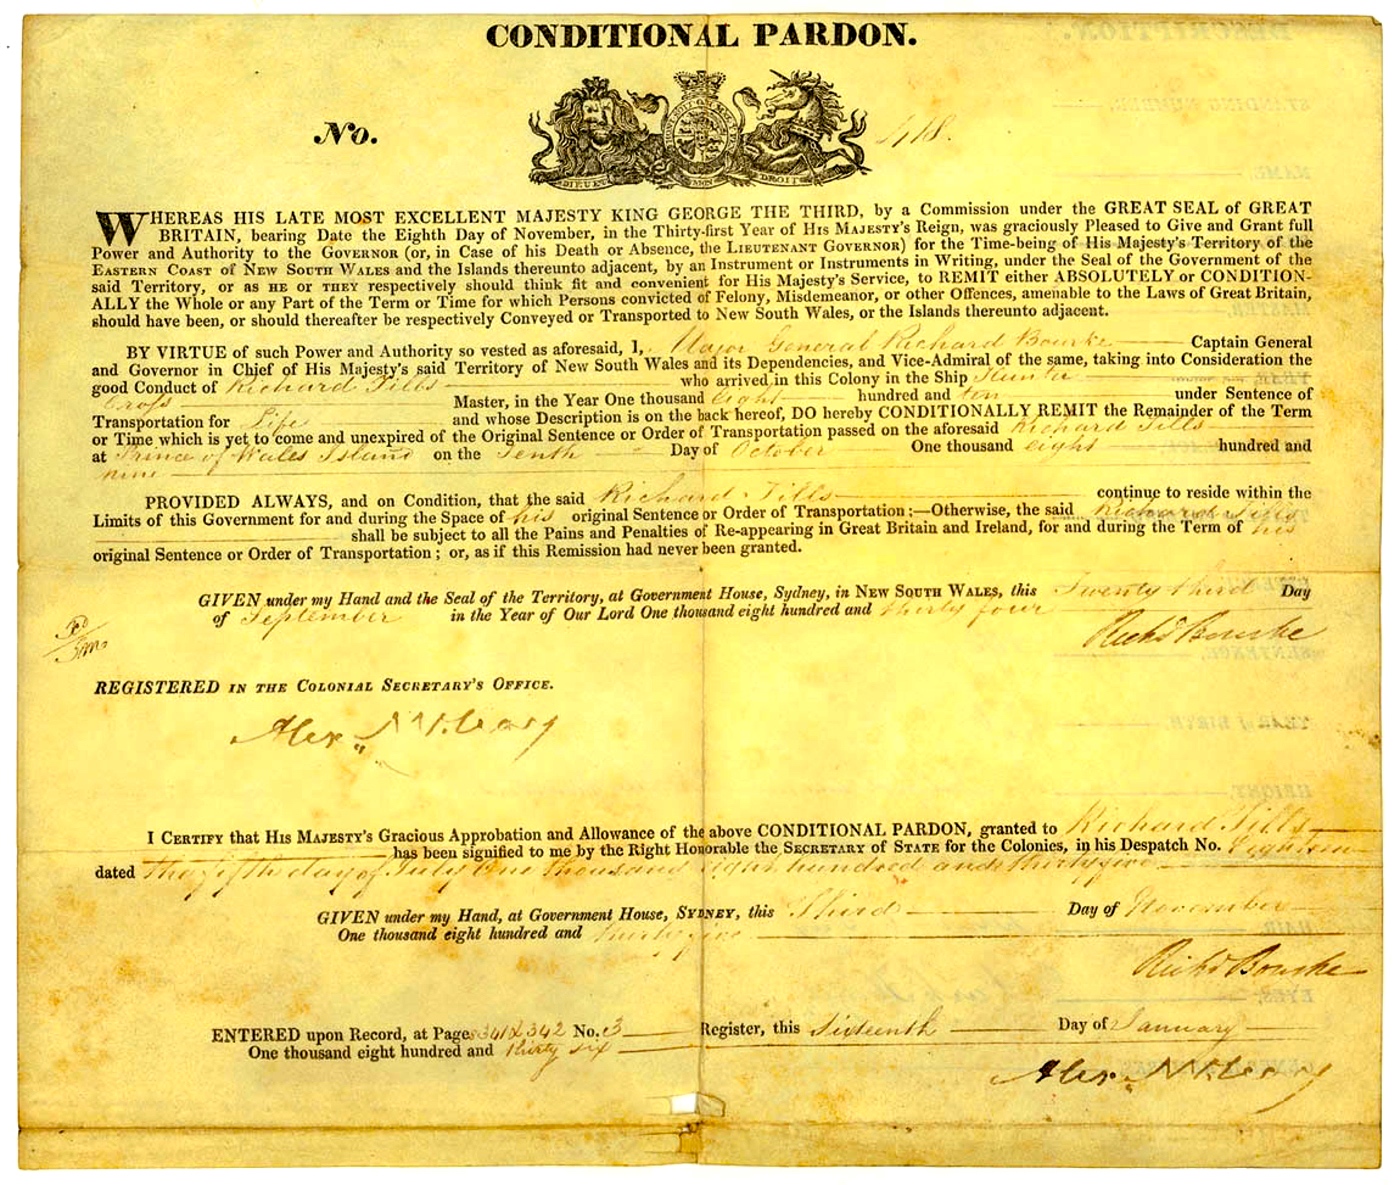 CONDITIONAL PARDON.
No. 418.
DIEU ET MON DROIT
WHEREAS HIS LATE MOST EXCELLENT MAJESTY KING GEORGE THE THIRD, by a Commission under the GREAT SEAL of GREAT
BRITAIN, bearing Date the Eighth Day of November, in the Thirty-first Year of HIS MAJESTY's Reign, was graciously Pleased to Give and Grant full
Power and Authority to the GOVERNOR (or, in Case of his Death or Absence, the LIEUTENANT GOVERNOR) for the Time-being of His Majesty's Territory of the
EASTERN COAST of NEW SOUTH WALES and the Islands thereunto adjacent, by an Instrument or Instruments in Writing, under the Seal of the Government of the
said Territory, or as HE or THEY respectively should think fit and convenient for His Majesty's Service, to REMIT either ABSOLUTELY or CONDITION-
ALLY the Whole or any Part of the Term or Time for which Persons convicted of Felony, Misdemeanor, or other Offences, amenable to the Laws of Great Britain,
should have been, or should thereafter be respectively Conveyed or Transported to New South Wales, or the Islands thereunto adjacent.
BY VIRTUE of such Power and Authority so vested as aforesaid, I, Major General Richard Bourke Captain General
and Governor in Chief of His Majesty's said Territory of New South Wales and its Dependencies, and Vice-Admiral of the same, taking into Consideration the
good Conduct of Richard Tills who arrived in this Colony in the Ship Hunter
Master, in the Year One thousand eight hundred and ten under Sentence of
Transportation for Life and whose Description is on the back hereof, DO hereby CONDITIONALLY REMIT the Remainder of the Term
or Time which is yet to come and unexpired of the Original Sentence or Order of Transportation passed on the aforesaid Richard Tills
at Prince of Wales Island on the Tenth Day of October One thousand eight hundred and
nine
PROVIDED ALWAYS, and on Condition, that the said Richard Tills continue to reside within the
Limits of this Government for and during the Space of his original Sentence or Order of Transportation;—Otherwise, the said Richard Tills
shall be subject to all the Pains and Penalties of Re-appearing in Great Britain and Ireland, for and during the Term of his
original Sentence or Order of Transportation; or, as if this Remission had never been granted.
GIVEN under my Hand and the Seal of the Territory, at Government House, Sydney, in NEW SOUTH WALES, this Twenty third Day
of September in the Year of Our Lord One thousand eight hundred and thirty four
Richd Bourke
REGISTERED IN THE COLONIAL SECRETARY'S OFFICE.
Alex. McLeay
I CERTIFY that HIS MAJESTY's Gracious Approbation and Allowance of the above CONDITIONAL PARDON, granted to Richard Tills
has been signified to me by the Right Honorable the SECRETARY of STATE for the Colonies, in his Despatch No. Eighteen
dated the fifth day of July One thousand eight hundred and thirty five
GIVEN under my Hand, at Government House, SYDNEY, this Third Day of November
One thousand eight hundred and thirty five
Richd Bourke
ENTERED upon Record, at Pages 341 & 342 No. 3 Register, this Sixteenth Day of January
One thousand eight hundred and thirty six
Alex. McLeay